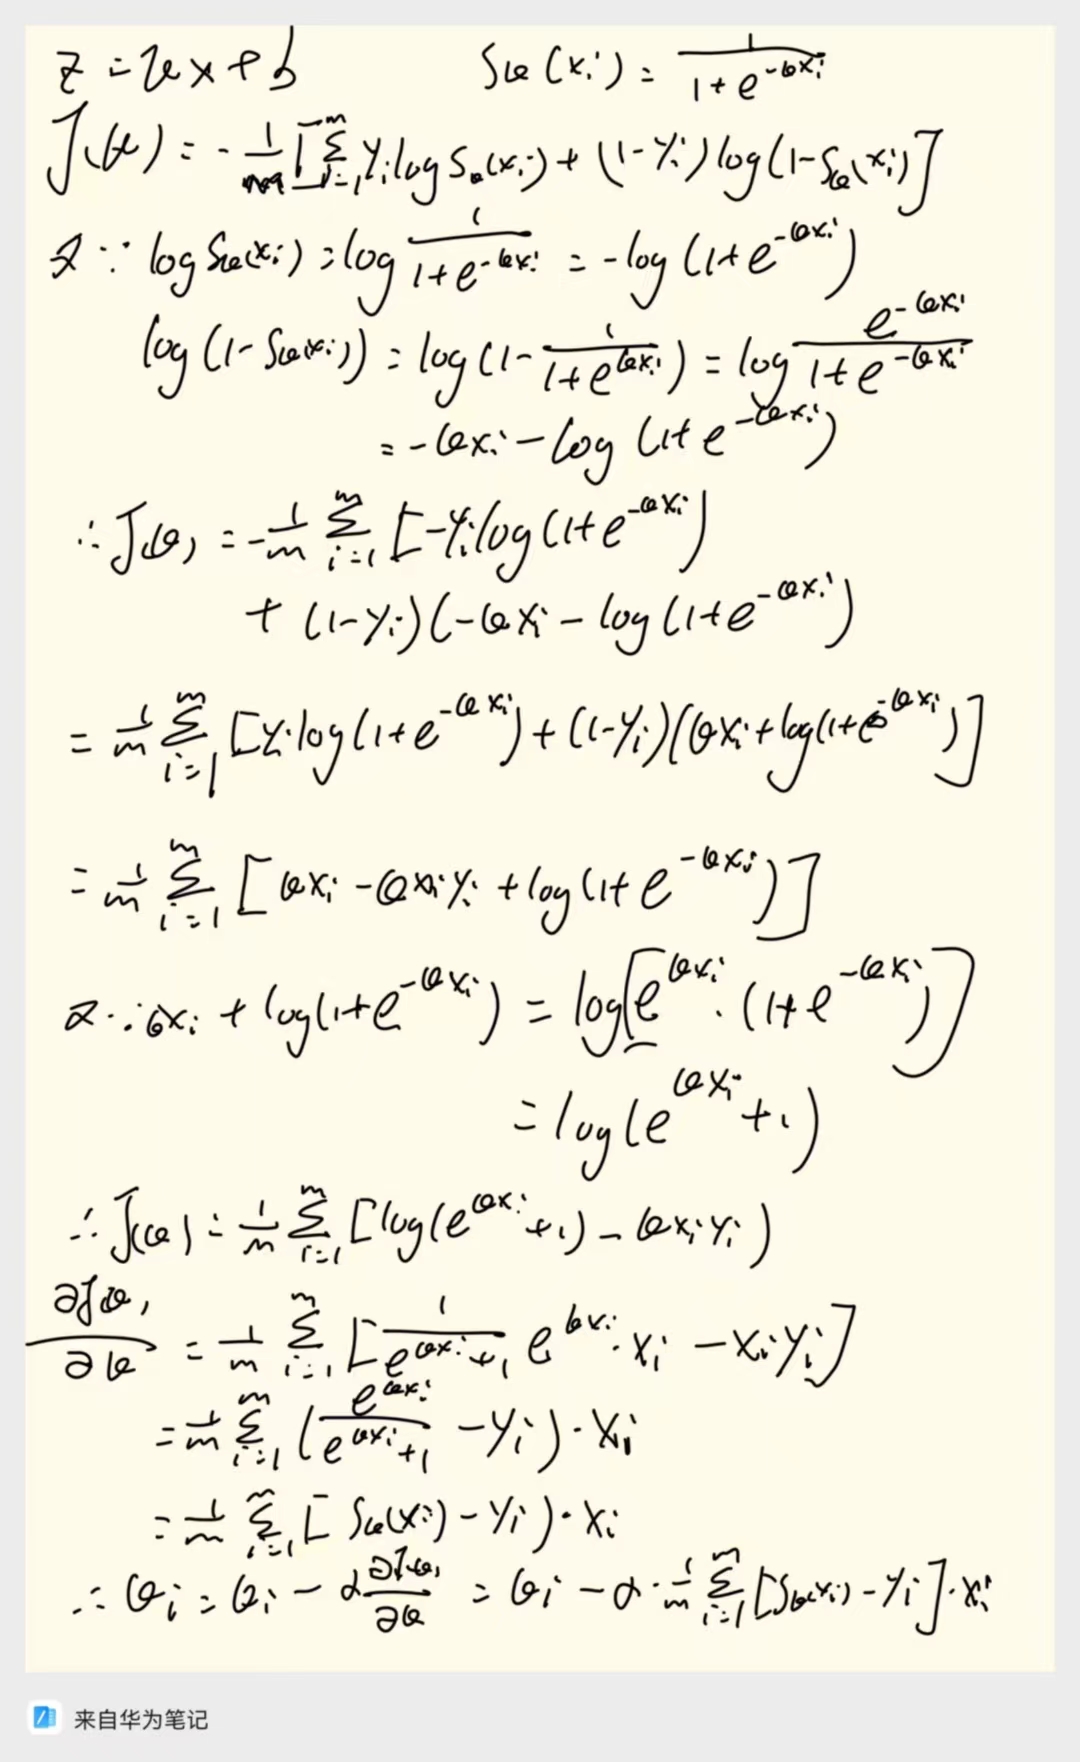 z = θx + b    Sθ(xi) = 1/(1+e^(-θxi))
J(θ) = -1/m [Σ_{i=1}^{m} yi log Sθ(xi) + (1-yi) log(1-Sθ(xi))]
又∵ log Sθ(xi) = log 1/(1+e^(-θxi)) = -log(1+e^(-θxi))
log(1-Sθ(xi)) = log(1- 1/(1+e^(θxi))) = log e^(-θxi)/(1+e^(-θxi))
= -θxi - log(1+e^(-θxi))
∴ J(θ) = -1/m Σ_{i=1}^{m} [-yi log(1+e^(-θxi))
+ (1-yi)(-θxi - log(1+e^(-θxi))
= 1/m Σ_{i=1}^{m} [yi log(1+e^(-θxi)) + (1-yi)(θxi + log(1+e^(-θxi))]
= 1/m Σ_{i=1}^{m} [θxi - θxiyi + log(1+e^(-θxi))]
又∵ θxi + log(1+e^(-θxi)) = log[e^(θxi)·(1+e^(-θxi))]
= log(e^(θxi)+1)
∴ J(θ) = 1/m Σ_{i=1}^{m} [log(e^(θxi)+1) - θxiyi)
∂J(θ)/∂θ = 1/m Σ_{i=1}^{m} [1/(e^(θxi)+1) e^(θxi)·xi - xiyi]
= 1/m Σ_{i=1}^{m} (e^(θxi)/(e^(θxi)+1) - yi)·xi
= 1/m Σ_{i=1}^{m} [Sθ(xi) - yi)·xi
∴ θi = θi - α ∂J(θ)/∂θ = θi - α·1/m Σ_{i=1}^{m} [Sθ(xi) - yi]·xi
来自华为笔记